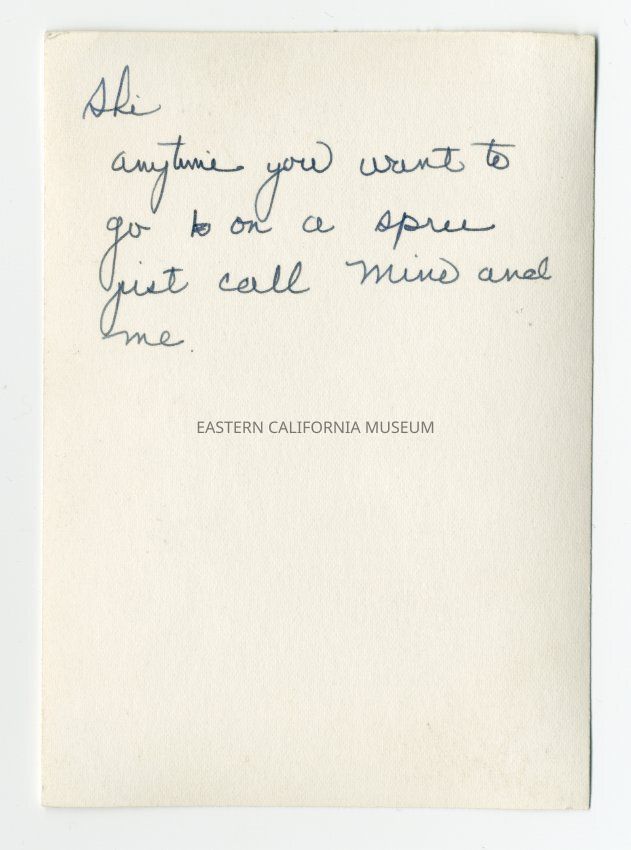 Ski
anytime you want to
go on a spree
just call Mine and
me.
EASTERN CALIFORNIA MUSEUM